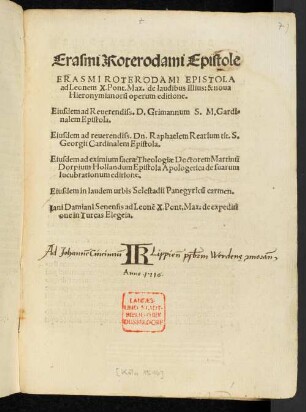 Erasmi Roterodami Epistole
ERASMI ROTERODAMI EPISTOLA
ad Leonem X. Pont. Max. de laudibus illius: & noua
Hieronymianorũ operum editione.
Eiusdem ad Reuerendiss. D. Grimannum S. M. Cardi-
nalem Epistola.
Eiusdem ad reuerendiss. Dn. Raphaelem Rearium tit. S.
Georgii Cardinalem Epistola.
Eiusdem ad eximium sacræ Theologiæ Doctorem Martinũ
Dorpium Hollandum Epistola Apologetica de suarum
lucubrationum editione.
Eiusdem in laudem urbis Selestadii Panegyricũ carmen.
Iani Damiani Senensis ad Leonẽ X. Pont. Max. de expediti
one in Turcas Elegeia.
Ad Johannẽ Cincinniũ Lippieñ
Anno 1516.
LANDES-
UND STADT-
BIBLIOTHEK
DÜSSELDORF